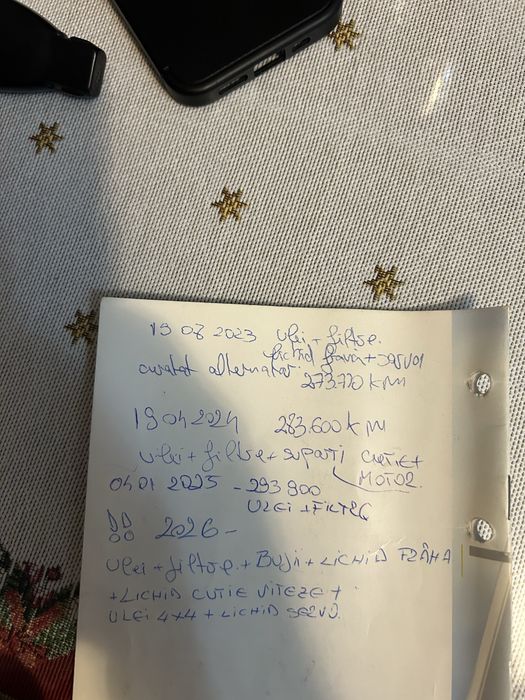 19 08 2023 ulei + filtre.
lichid frână + servo
curatat alternator.
273.770 KM
19 04 2024 283.600 KM
ulei + filtre + suporti CUTIE +
MOTOR.
04 01 2025 - 293 800
ULEI + FILTRE
!! 2026 -
Ulei + filtre. + BUJI + LICHID FRÂNA
+ LICHID CUTIE VITEZE +
ULEI 4x4 + LICHID SERVO.